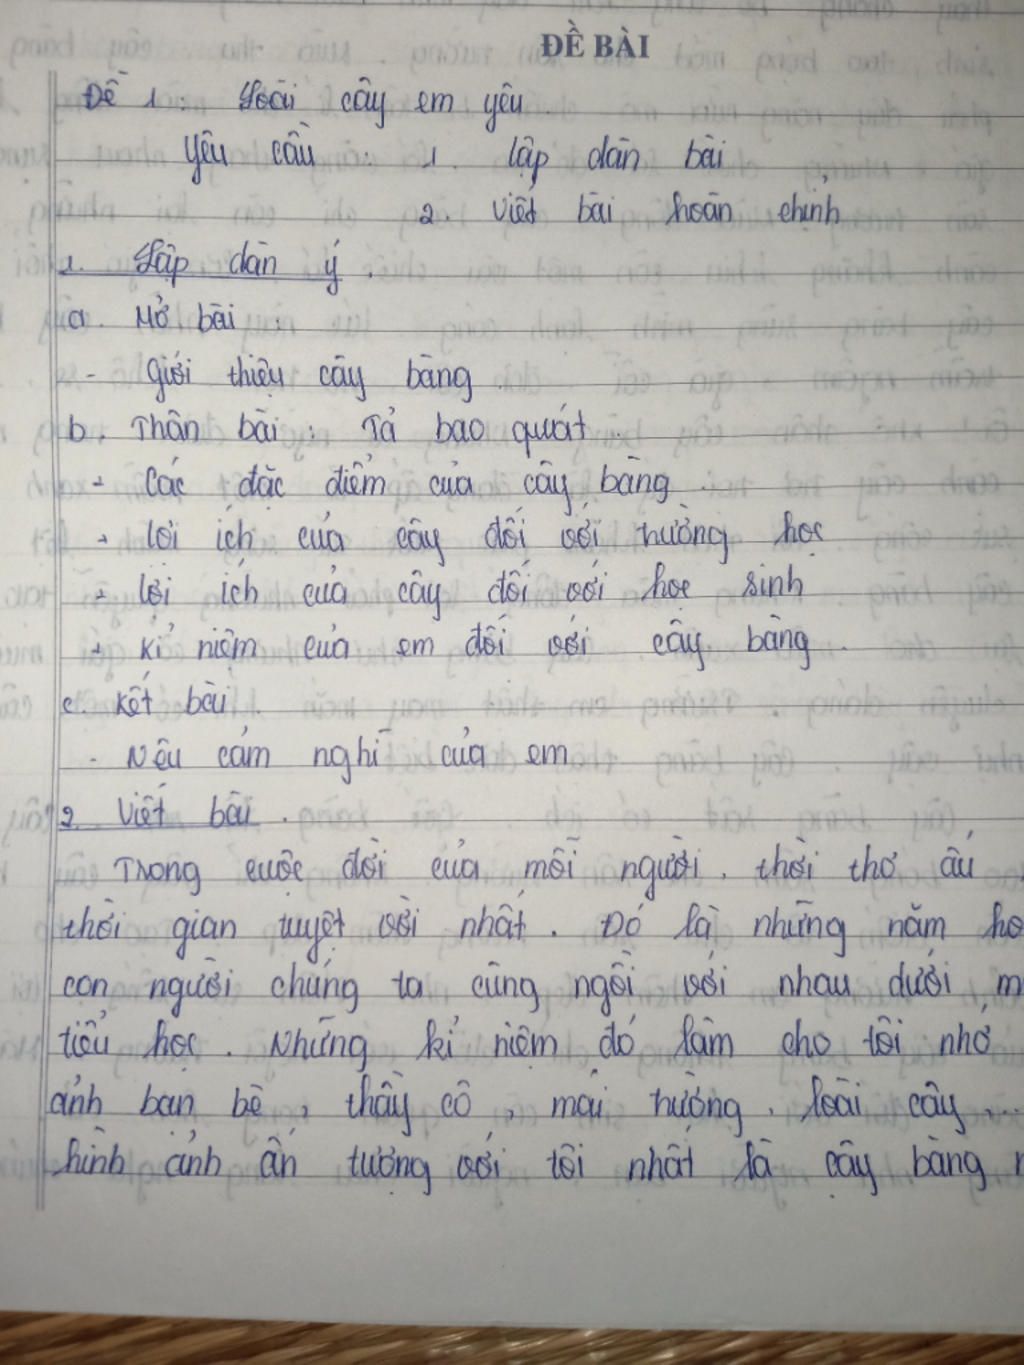 ĐỀ BÀI
Đề 1 : Loài cây em yêu
Yêu cầu : 1. lập dàn bài
2. Viết bài hoàn chỉnh
1. Lập dàn ý.
a. Mở bài :
- Giới thiệu cây bàng
b. Thân bài : Tả bao quát.
- Các đặc điểm của cây bàng.
+ lợi ích của cây đối với trường học
+ lợi ích của cây đối với học sinh
+ kỉ niệm của em đối với cây bàng.
c. Kết bài.
- Nêu cảm nghĩ của em
2. Viết bài.
Trong cuộc đời của mỗi người, thời thơ ấu
thời gian tuyệt vời nhất. Đó là những năm
con người chúng ta cùng ngồi với nhau dưới
tiểu học. Những kỉ niệm đó làm cho tôi nhớ
ảnh bạn bè, thầy cô, mái trường, loài cây...
hình ảnh ấn tượng với tôi nhất là cây bàng